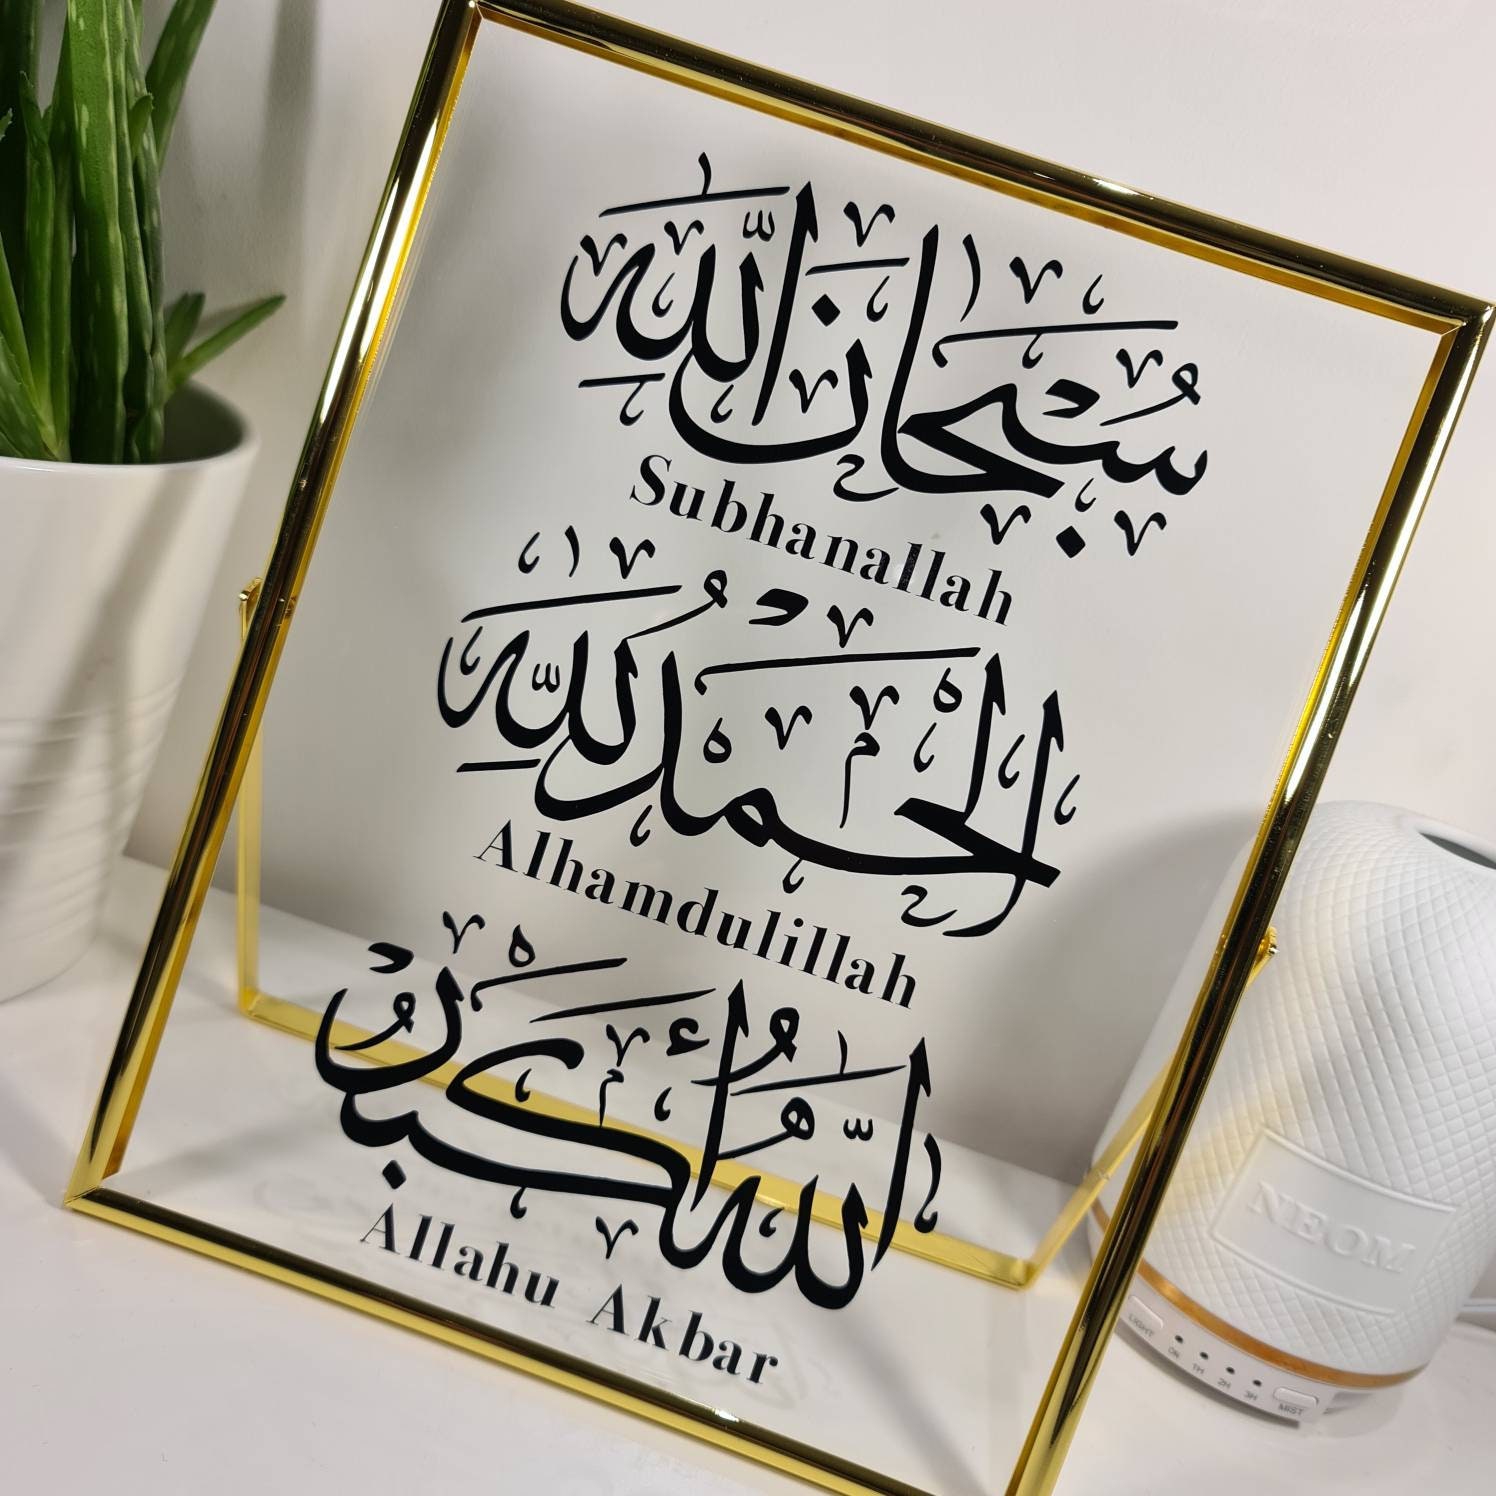 سُبْحَانَ اللَّهِ
Subhanallah
الْحَمْدُ لِلَّهِ
Alhamdulillah
اللَّهُ أَكْبَرُ
Allahu Akbar
NEOM
LIGHT
ON 1H 2H 3H
MIST